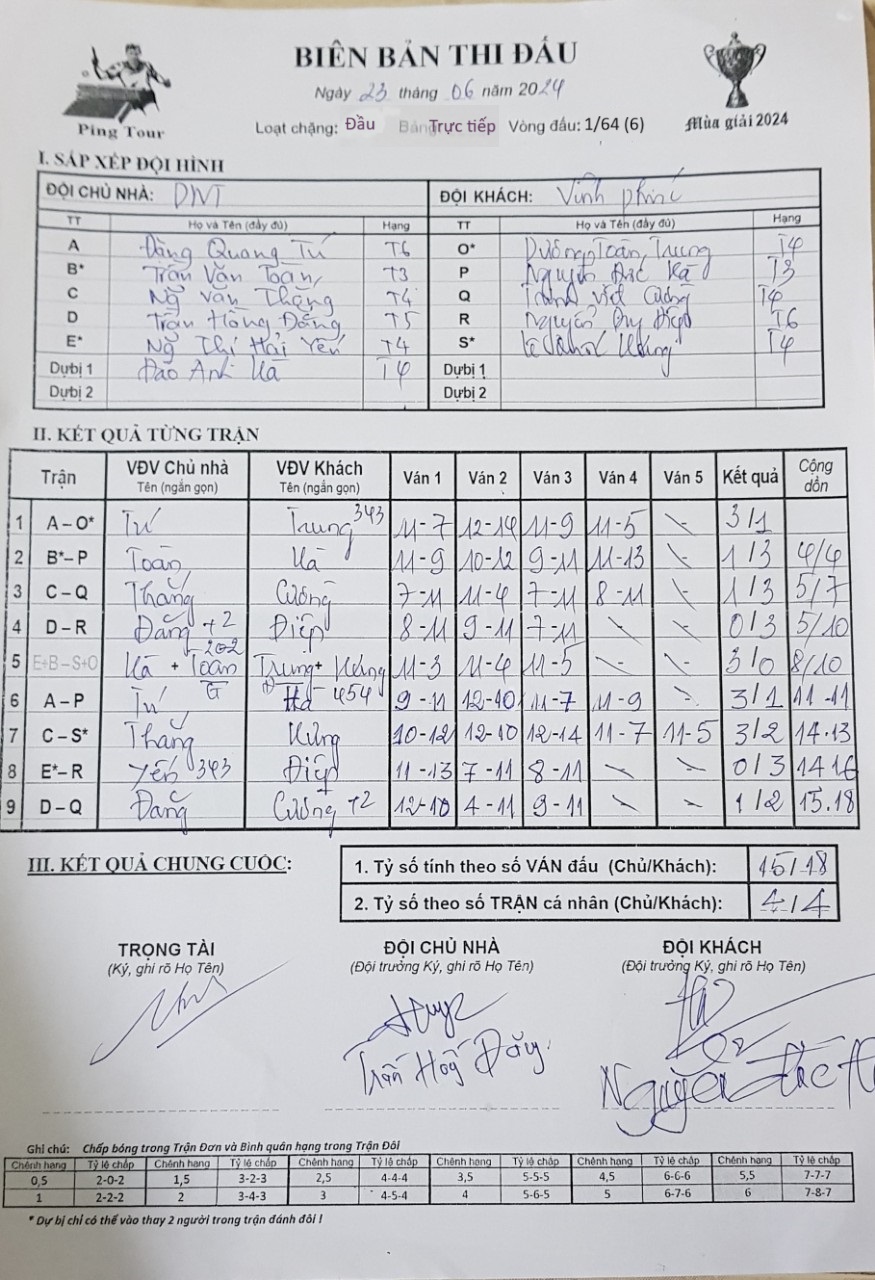 BIÊN BẢN THI ĐẤU
Ngày 23 tháng 06 năm 2024
Ping Tour
Loạt chặng: Đầu Bảng Trực tiếp Vòng đấu: 1/64 (6)
Mùa giải 2024
I. SẮP XẾP ĐỘI HÌNH
ĐỘI CHỦ NHÀ: DNT ĐỘI KHÁCH: Vĩnh phúc
TT Họ và Tên (đầy đủ) Hạng TT Họ và Tên (đầy đủ) Hạng
A Đặng Quang Tú T6 O* Dương Toàn Trung T4
B* Trần Văn Toàn T3 P Nguyễn Đắc Hà T3
C Ng Văn Thắng T4 Q Việt Cường T4
D Trần Hồng Đăng T5 R Nguyễn Điệp T6
E* Ng Thị Hải Yến T4 S* T4
Dự bị 1 Đào Anh Hà T4 Dự bị 1
Dự bị 2 Dự bị 2
II. KẾT QUẢ TỪNG TRẬN
Trận VĐV Chủ nhà Tên (ngắn gọn) VĐV Khách Tên (ngắn gọn) Ván 1 Ván 2 Ván 3 Ván 4 Ván 5 Kết quả Cộng dồn
1 A – O* Tú Trung 343 11-7 12-14 11-9 11-5 \ 3/1
2 B*– P Toàn Hà 11-9 10-12 9-11 11-13 \ 1/3 4/4
3 C – Q Thắng Cường 7-11 11-4 7-11 8-11 \ 1/3 5/7
4 D – R Đăng +2 Điệp 8-11 9-11 7-11 \ \ 0/3 5/10
5 E+B – S+O Hà + Toàn 202 Trung + Hưng 11-3 11-4 11-5 \ \ 3/0 8/10
6 A – P Tú Hà 454 9-11 12-10 11-7 11-9 - 3/1 11-11
7 C – S* Thắng Hưng 10-12 12-10 12-14 11-7 11-5 3/2 14.13
8 E*– R Yến 343 Điệp 11-13 7-11 8-11 \ \ 0/3 14 16
9 D – Q Đăng Cường +2 12-10 4-11 9-11 \ \ 1/2 15.18
III. KẾT QUẢ CHUNG CUỘC:
1. Tỷ số tính theo số VÁN đấu (Chủ/Khách): 15/18
2. Tỷ số theo số TRẬN cá nhân (Chủ/Khách): 4/4
TRỌNG TÀI ĐỘI CHỦ NHÀ ĐỘI KHÁCH
(Ký, ghi rõ Họ Tên) (Đội trưởng Ký, ghi rõ Họ Tên) (Đội trưởng Ký, ghi rõ Họ Tên)
Trần Hồng Đăng
Nguyễn Đắc H
Ghi chú: Chấp bóng trong Trận Đơn và Bình quân hạng trong Trận Đôi
Chênh hạng Tỷ lệ chấp Chênh hạng Tỷ lệ chấp Chênh hạng Tỷ lệ chấp Chênh hạng Tỷ lệ chấp Chênh hạng Tỷ lệ chấp Chênh hạng Tỷ lệ chấp
0,5 2-0-2 1,5 3-2-3 2,5 4-4-4 3,5 5-5-5 4,5 6-6-6 5,5 7-7-7
1 2-2-2 2 3-4-3 3 4-5-4 4 5-6-5 5 6-7-6 6 7-8-7
* Dự bị chỉ có thể vào thay 2 người trong trận đánh đôi !